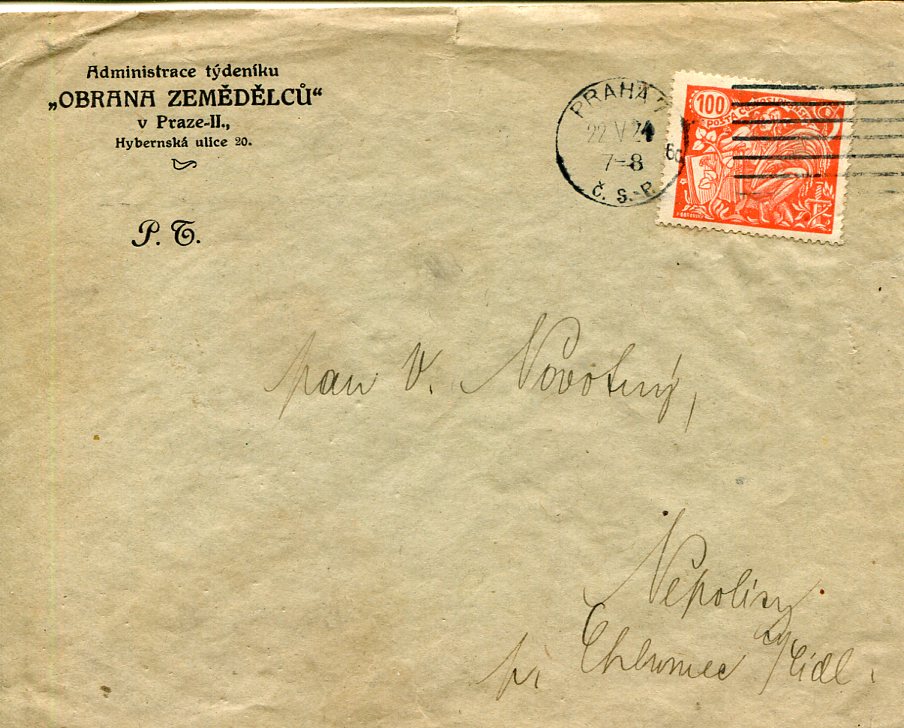 Administrace týdeníku
„OBRANA ZEMĚDĚLCŮ“
v Praze-II.,
Hybernská ulice 20.
P. T.
PRAHA 7
22 V 24
7-8
6d
Č. S. P.
100
POŠTA ČESKOSLOVENSKÁ
pan V. Novotný,
Nepolisy
při Chlumec n/Cidl.